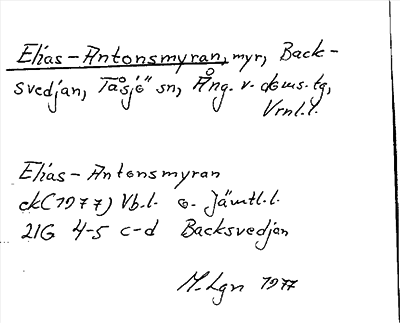 Elias-Antonsmyran, myr, Back-
svedjan, Tåsjö sn, Ång. v. doms.tg,
Vrnl.l.
Elias-Antonsmyran
ek(1977) Vb.l. o. Jämtl.l.
21G 4-5 c-d Backsvedjan
M.Lgn 1977